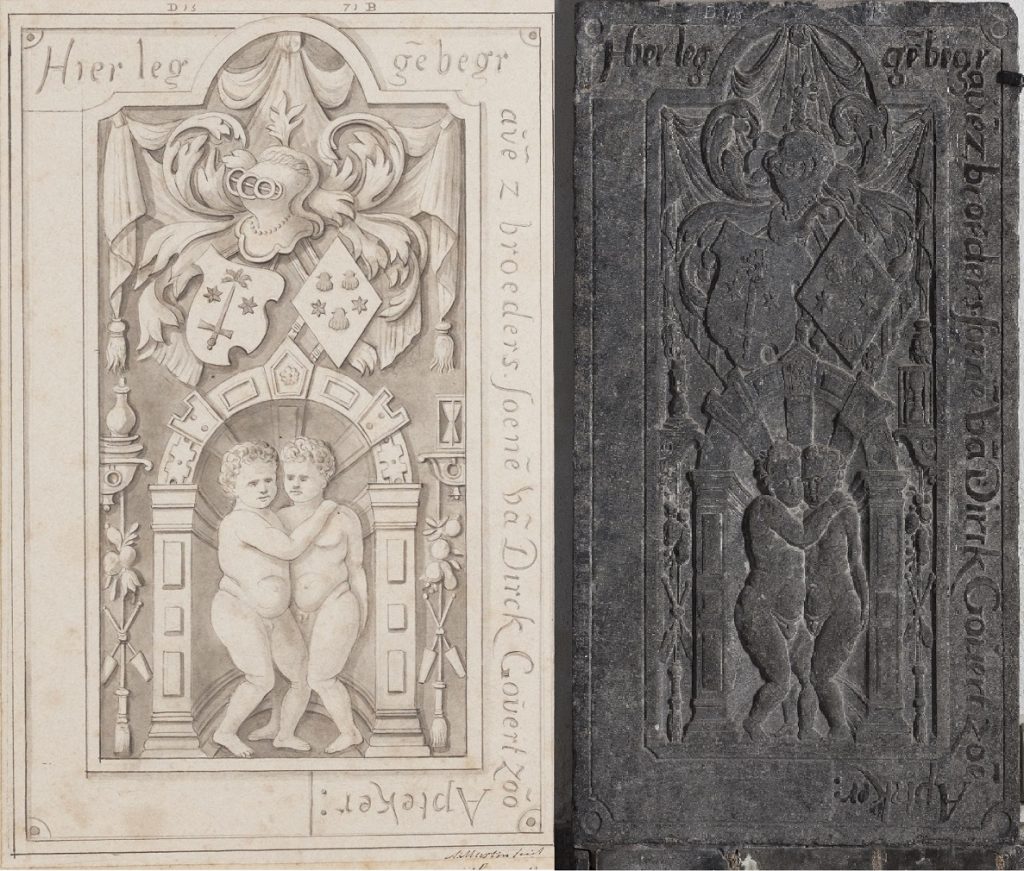 D 15 71 B
Hier leg gē begr
aūe z broeders soenē vā Dirck Goūert zoō
Apteker:
Hier leg gē begr
avē z broeders soenē vā Dirck Goūert zoē
Apteker: